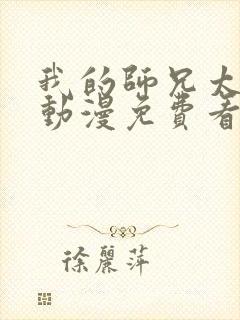 我的師兄太
動漫免費看
徐麗萍